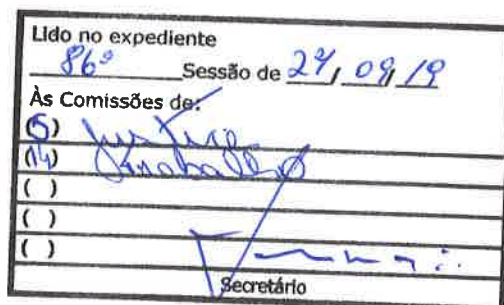 Lido no expediente
86ª Sessão de 24, 09, 19
Às Comissões de:
(5) Justiça
(14) Trabalho
( )
( )
( )
Secretário